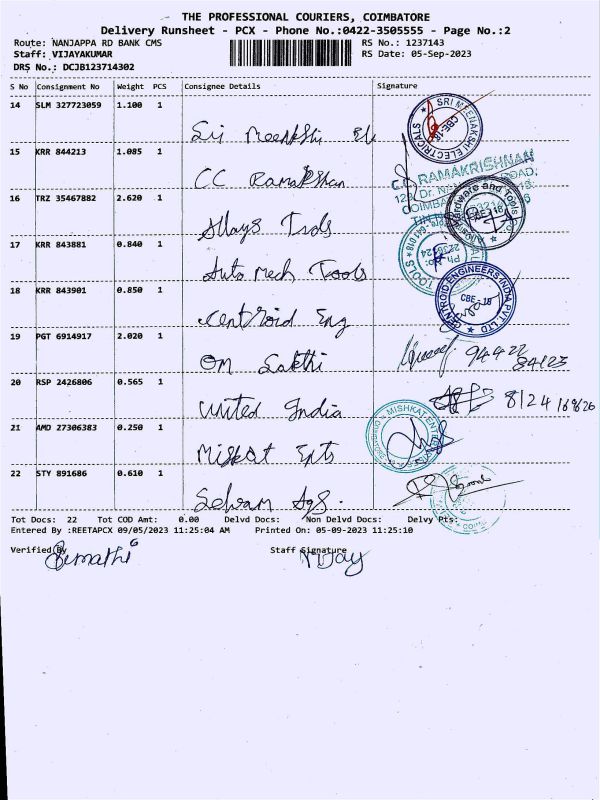 THE PROFESSIONAL COURIERS, COIMBATORE
Delivery Runsheet - PCX - Phone No.:0422-3505555 - Page No.:2
Route: NANJAPPA RD BANK CMS RS No.: 1237143
Staff: VIJAYAKUMAR RS Date: 05-Sep-2023
DRS No.: DCJB123714302
S No Consignment No Weight PCS Consignee Details Signature
14 SLM 327723059 1.100 1
Sri Meenkshi
SRI MEENAKSHI ELECTRICALS
CBE-18
15 KRR 844213 1.085 1
CC Ramakshan
C.C. RAMAKRISHNAN
16 TRZ 35467882 2.620 1
Allays Tools
Hardware and Tools
17 KRR 843881 0.840 1
Auto Mech Tools
TOOLS
Ph No:
18 KRR 843901 0.850 1
Centroid Eng
CENTROID ENGINEERS INDIA PVT LTD
CBE-18
19 PGT 6914917 2.020 1
Om Sakthi
94422
84123
20 RSP 2426806 0.565 1
United India
8124169626
21 AMD 27306383 0.250 1
Miskat Ents
MISHKAT ENTERPRISES
22 STY 891686 0.610 1
Selvam Ags.
Tot Docs: 22 Tot COD Amt: 0.00 Delvd Docs: Non Delvd Docs: Delvy Pts:
Entered By :REETAPCX 09/05/2023 11:25:04 AM Printed On: 05-09-2023 11:25:10
Verified By Staff Signature
Hemathi Vijay